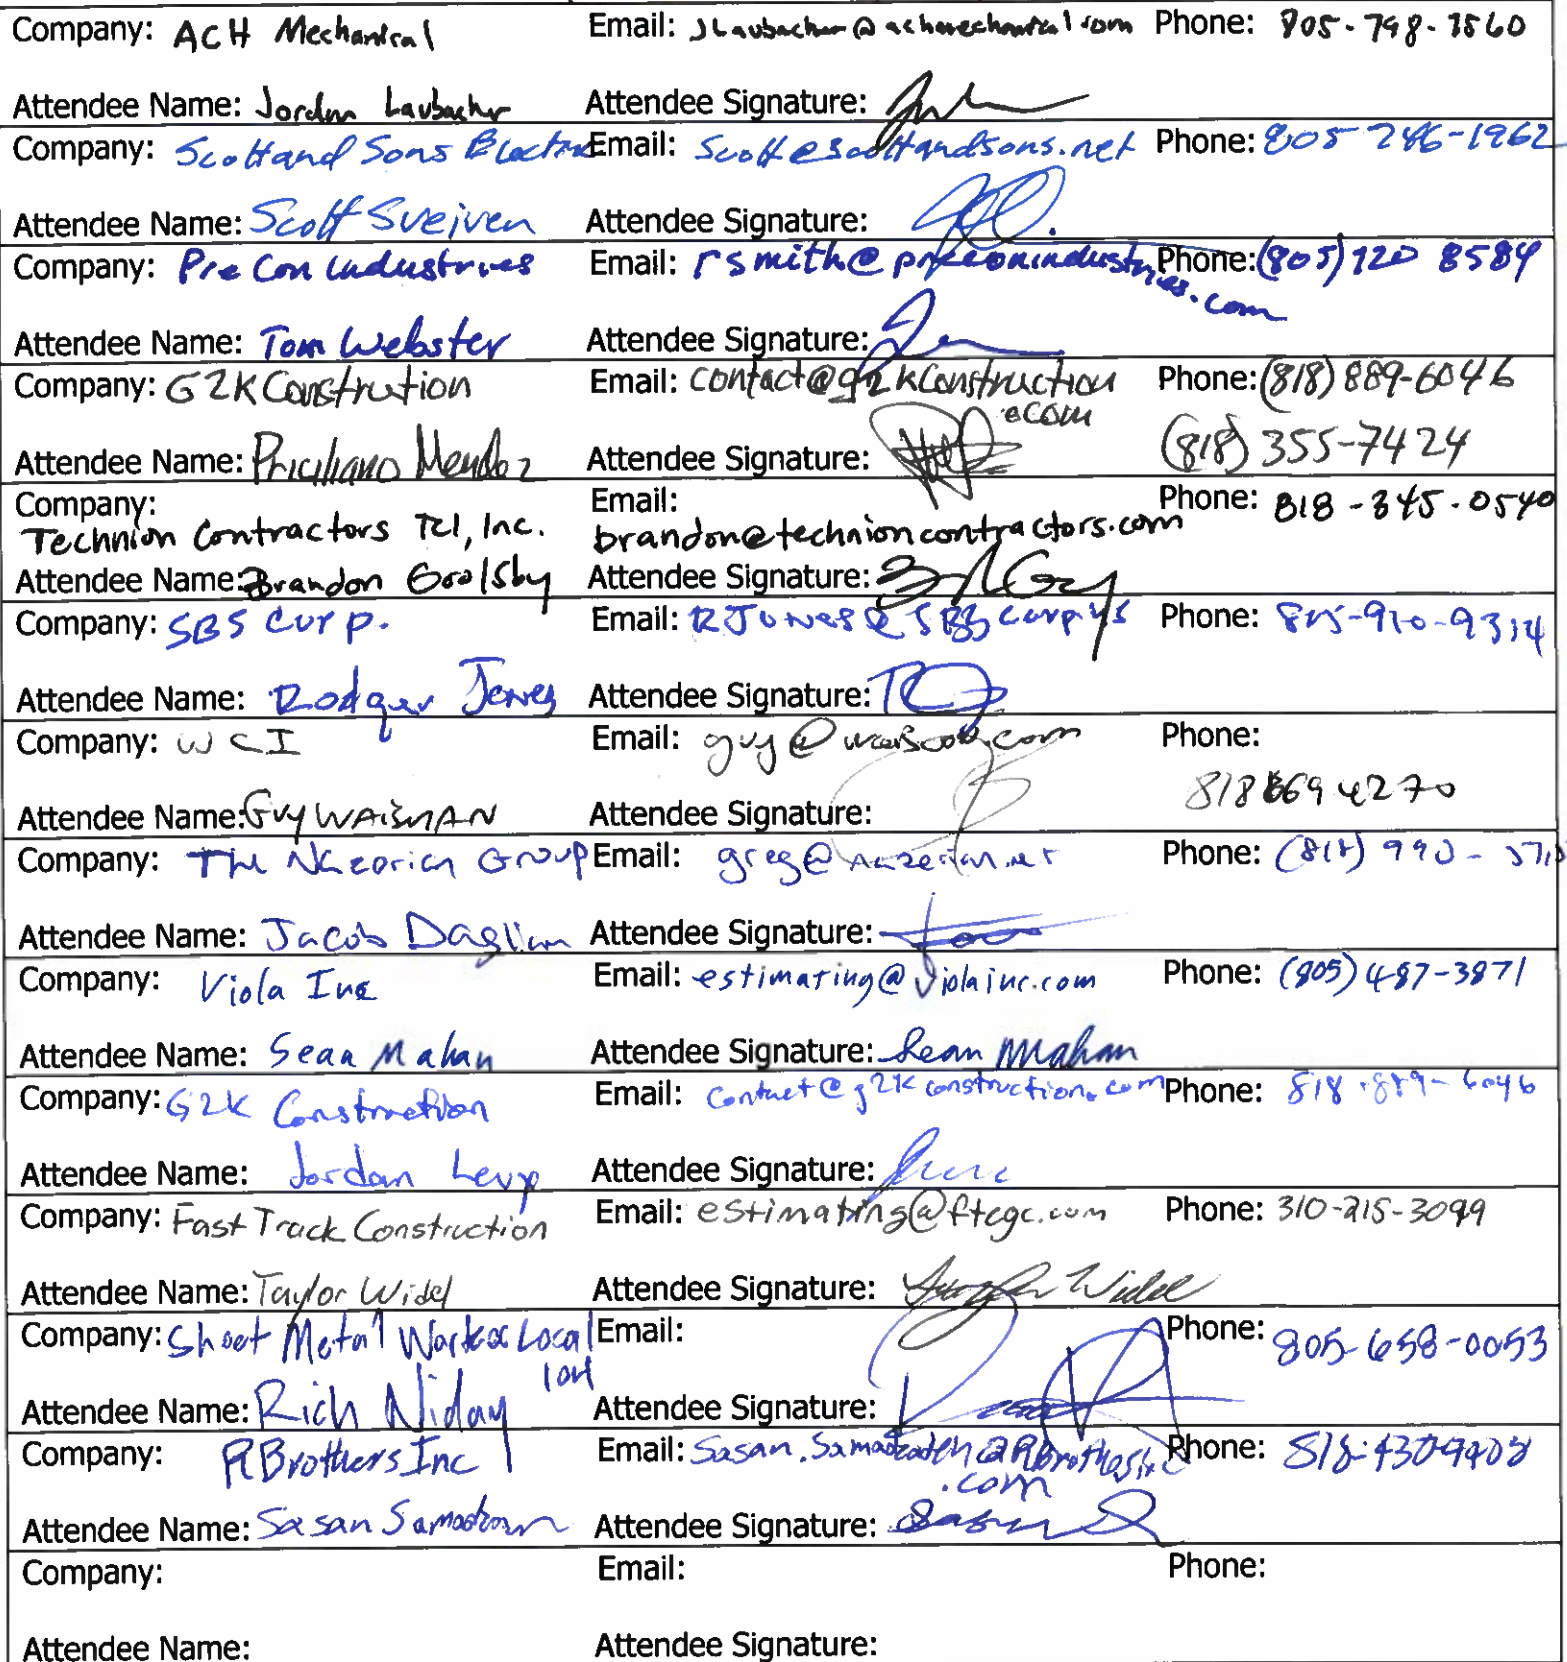 Company: ACH Mechanical Email: JLaubacher@achmechanical.com Phone: 805-798-7560
Attendee Name: Jordan Laubacher Attendee Signature:
Company: Scott and Sons Electric Email: Scott@scottandsons.net Phone: 805-246-1962
Attendee Name: Scott Sveiven Attendee Signature:
Company: PreCon Industries Email: rsmith@preconindustries.com Phone: (805) 720 8584
Attendee Name: Tom Webster Attendee Signature:
Company: G2K Constrution Email: contact@g2kConstruction.com Phone: (818) 889-6046
Attendee Name: Priciliano Mendoz Attendee Signature: (818) 355-7424
Company: Email: Phone: 818-345-0540
Technion Contractors TCI, Inc. brandon@technioncontractors.com
Attendee Name: Brandon Goolsby Attendee Signature:
Company: SBS Corp. Email: RJones@SBScorp.us Phone: 805-910-9314
Attendee Name: Rodger Jones Attendee Signature:
Company: WCI Email: guy@ Phone:
818 669 4270
Attendee Name: GUY WAISMAN Attendee Signature:
Company: The Nazerian Group Email: greg@nazerian.net Phone: (818) 990-
Attendee Name: Jacob Daglian Attendee Signature:
Company: Viola Inc Email: estimating@violainc.com Phone: (805) 487-3871
Attendee Name: Sean Mahan Attendee Signature: Sean Mahan
Company: G2K Construction Email: contact@g2kconstruction.com Phone: 818-889-6046
Attendee Name: Jordan Levy Attendee Signature:
Company: Fast Track Construction Email: estimating@ftcgc.com Phone: 310-215-3099
Attendee Name: Taylor Widel Attendee Signature: Widel
Company: Sheet Metal Workers Local Email: Phone: 805-658-0053
104
Attendee Name: Rich Niday Attendee Signature:
Company: RBrothers Inc Email: Phone:
.com
Attendee Name: Sasan Attendee Signature:
Company: Email: Phone:
Attendee Name: Attendee Signature: